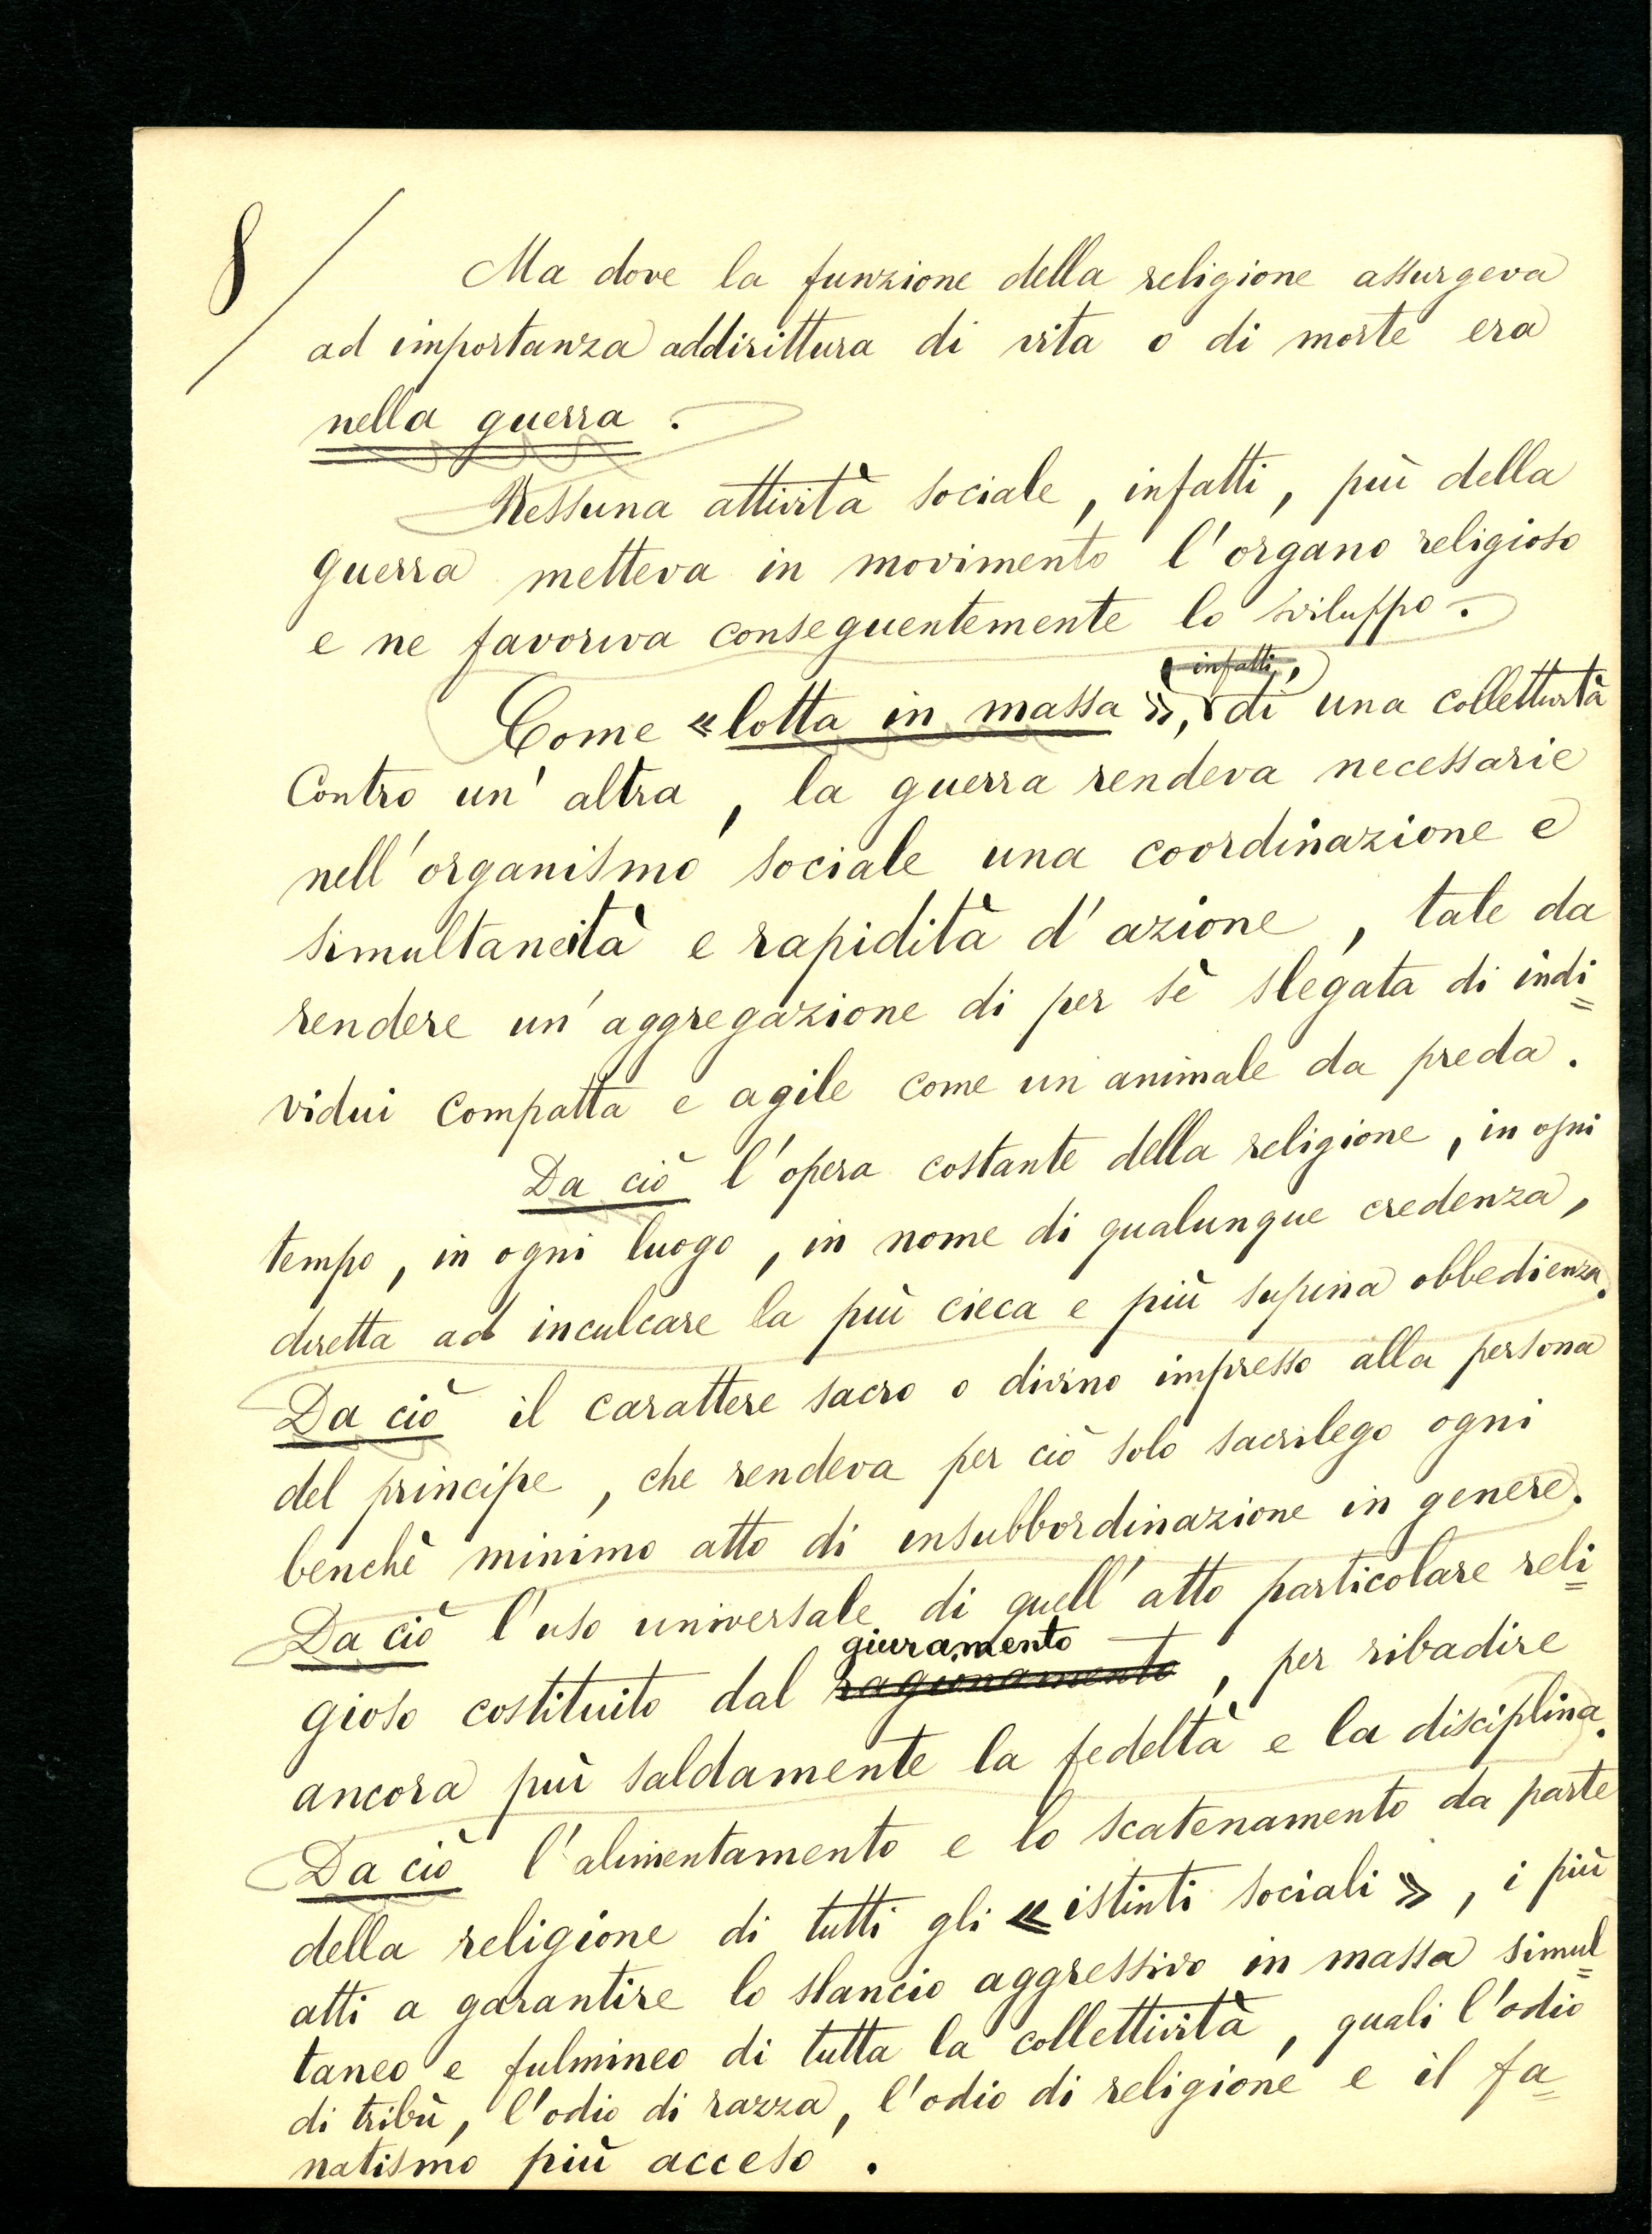 8/
Ma dove la funzione della religione assurgeva
ad importanza addirittura di vita o di morte era
nella guerra .
Nessuna attività sociale , infatti , più della
guerra metteva in movimento l'organo religioso
e ne favoriva conseguentemente lo sviluppo .
infatti,
Come « lotta in massa », di una collettività
Contro un' altra , la guerra rendeva necessarie
nell'organismo sociale una coordinazione e
simultaneità e rapidità d'azione , tale da
rendere un'aggregazione di per sè slegata di indi=
vidui compatta e agile come un animale da preda .
Da ciò l'opera costante della religione , in ogni
tempo , in ogni luogo , in nome di qualunque credenza ,
diretta ad inculcare la più cieca e più supina obbedienza.
Da ciò il carattere sacro o divino impresso alla persona
del principe , che rendeva per ciò solo sacrilego ogni
benchè minimo atto di insubbordinazione in genere.
Da ciò l'uso universale di quell'atto particolare reli=
giuramento
gioso costituito dal ragionamento , per ribadire
ancora più saldamente la fedeltà e la disciplina.
Da ciò l'alimentamento e lo scatenamento da parte
della religione di tutti gli « istinti sociali » , i più
atti a garantire lo slancio aggressivo in massa simul=
taneo e fulmineo di tutta la collettività , quali l'odio
di tribù , l'odio di razza , l'odio di religione e il fa=
natismo più acceso .